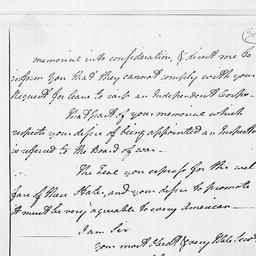 memorial into consideration, & direct me to
inform you that they cannot comply with your
Request for leave to raise an Independent Corps—
That part of your memorial which
respects your desire of being appointed an Inspector
is referred to the Board of war—
The Zeal you express for the wel
fare of these States, and your desire to promote
it must be very agreable to every American—
I am Sir
your most Obedt & very Hble Servt